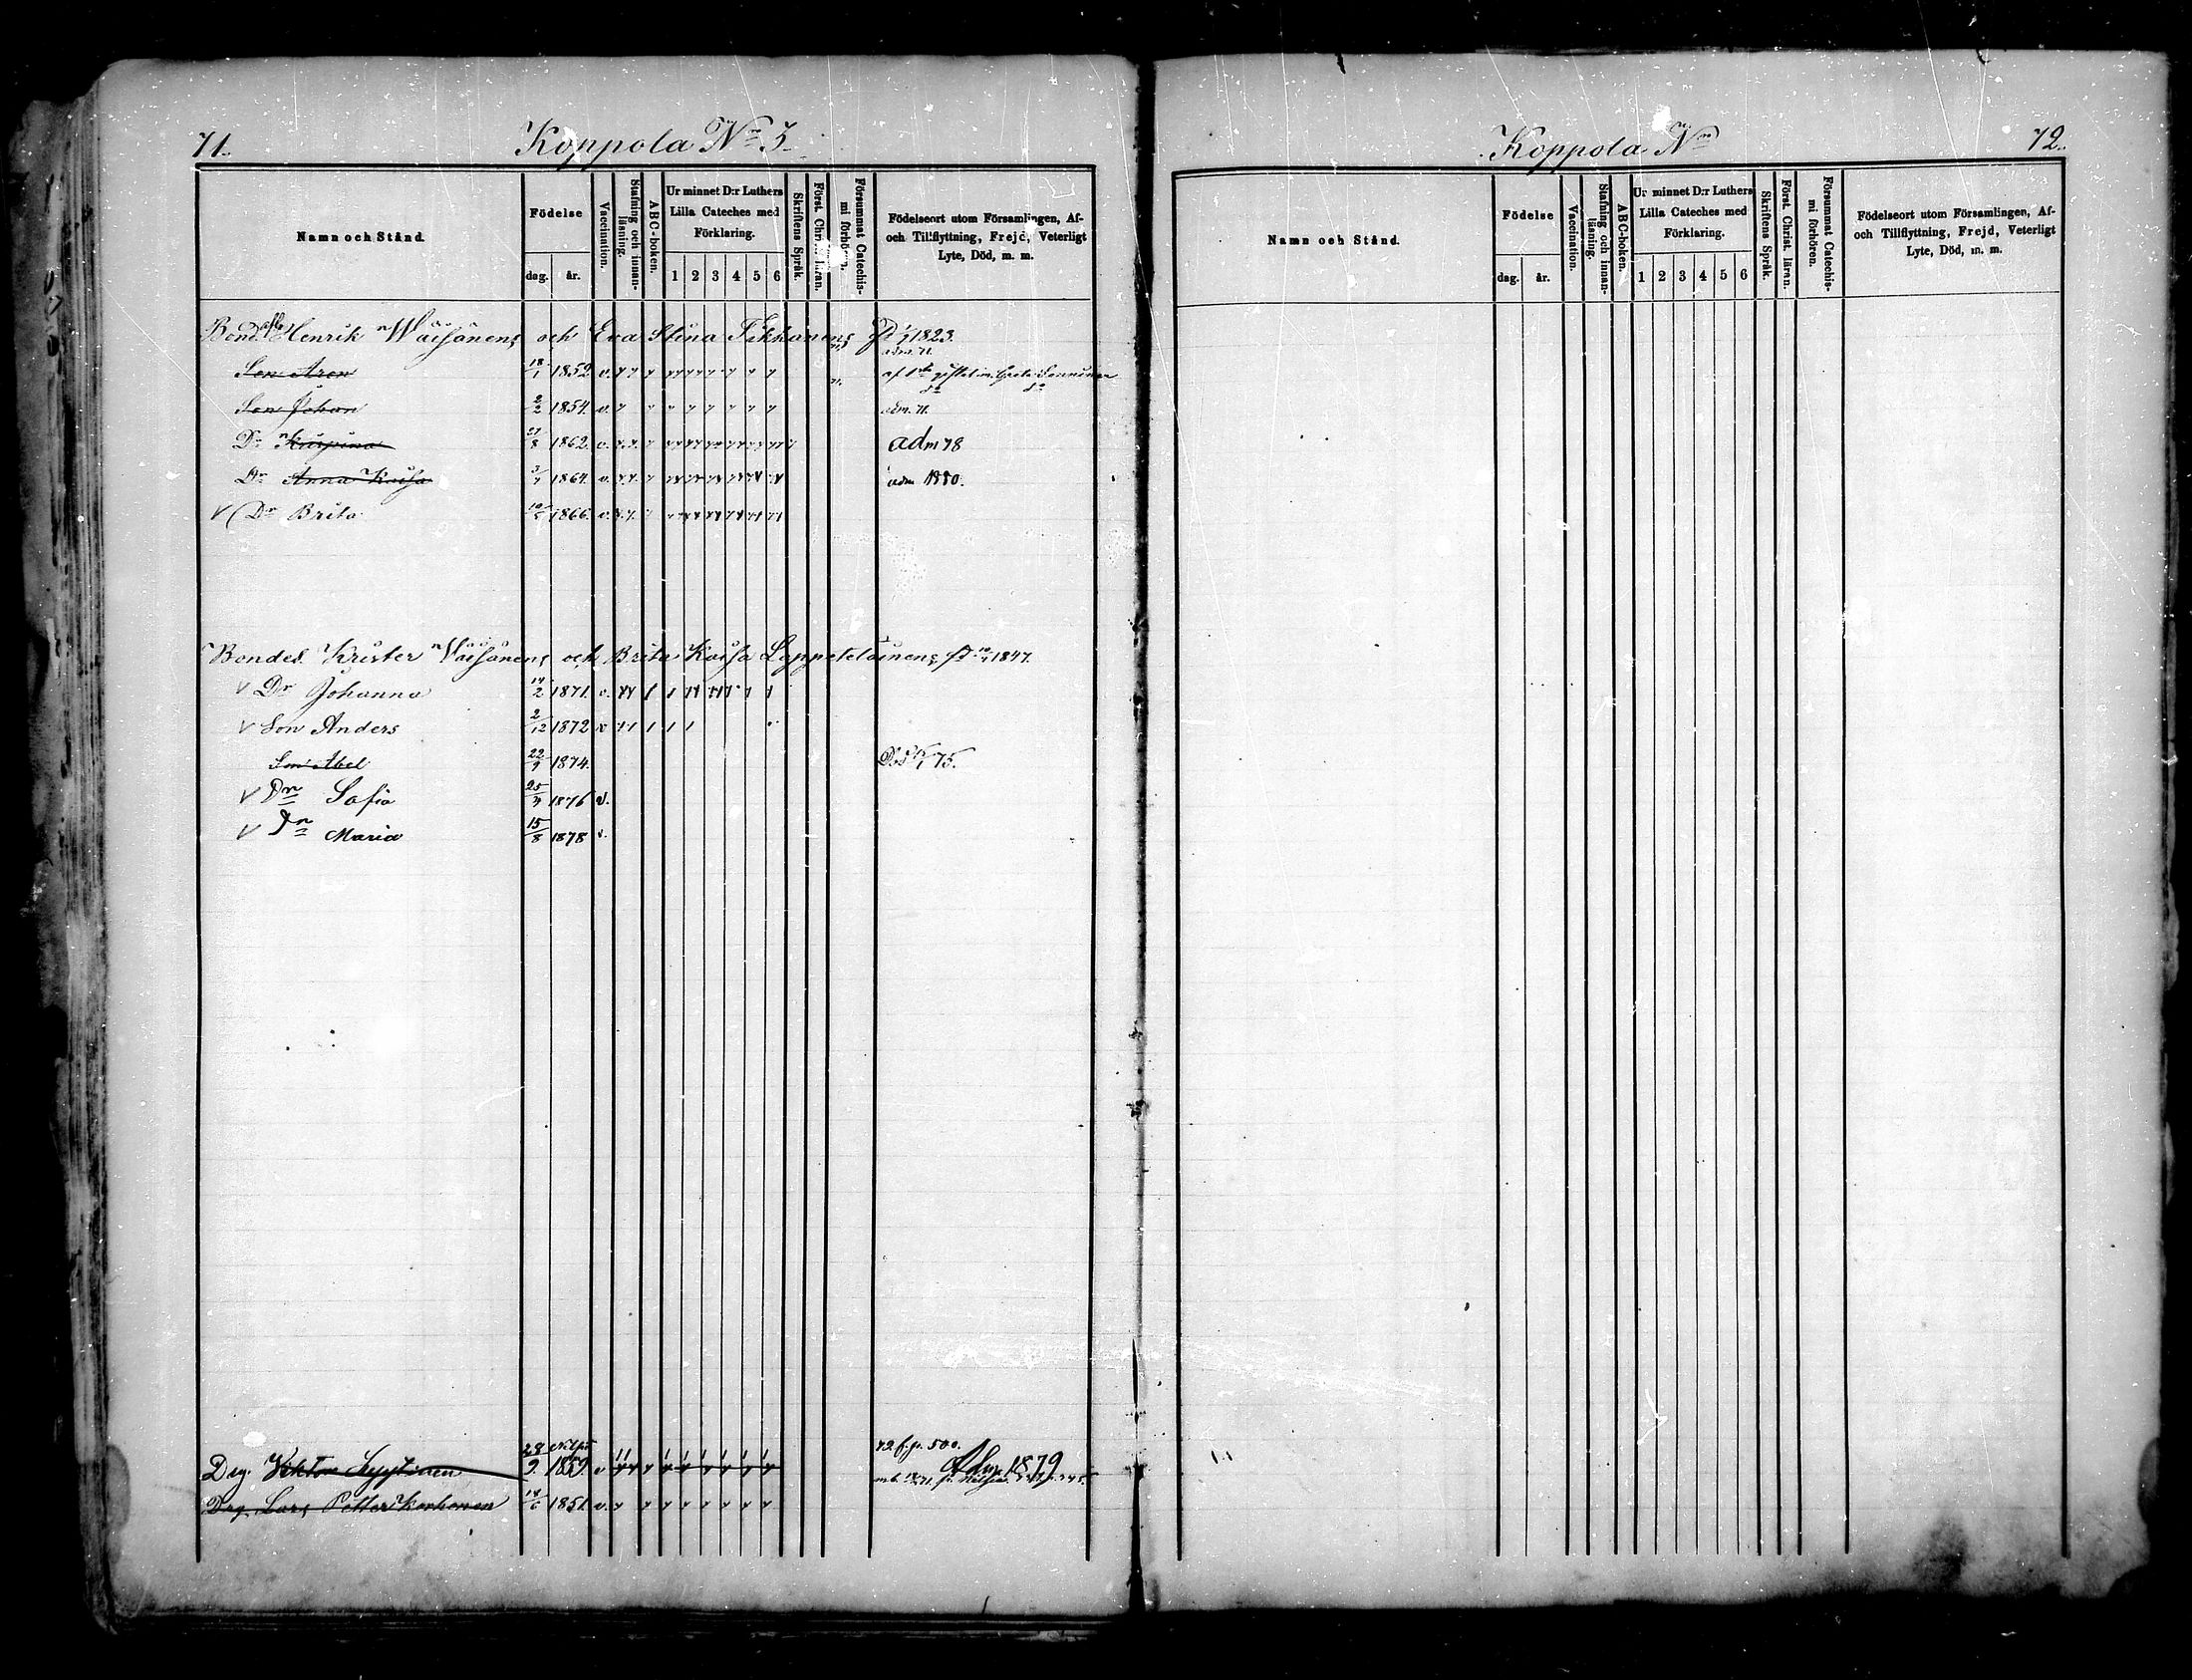 71.
Koppola No 3.
Namn och Stånd.
Födelse
dag.
år.
Vaccination.
Stafning och innan-läsning.
ABC-boken.
Ur minnet D:r Luthers Lilla Cateches med Förklaring.
1 2 3 4 5 6
Skriftens Språk.
Först. Christ. läran.
Försummat Catechis-mi förhören.
Födelseort utom Församlingen, Af-
och Tillflyttning, Frejd, Veterligt
Lyte, Död, m. m.
Henrik Wäisänens och Eva Stina Tikkanens 1823.
Son Aron 18/1 1852 v. adm. 71.
Son Johan 2/2 1854. v. adm. 71.
Dr 27/8 1862. v. adm 78
Dr Anna Kaisa 3/7 1864. v. adm 1880.
V Dr Brita 1866. v.
Bondes. Krister Wäisänens och Brita Kaisa Lappetelainens 1847.
V Dr Johanna 14/2 1871. v.
V Son Anders 2/12 1872 v
Son Abel 22/9 1874. Död 75.
V Dn Sofia 25/3 1876 v.
V Dn Maria 15/8 1878 v.
Drg. Viktor Lyytinen 28/9 1859. v Adm 1879
Drg. Lars Petter Korhonen 14/6 1851. v.
Koppola No
72.
Namn och Stånd.
Födelse
dag.
år.
Vaccination.
Stafning och innan-läsning.
ABC-boken.
Ur minnet D:r Luthers Lilla Cateches med Förklaring.
1 2 3 4 5 6
Skriftens Språk.
Först. Christ. läran.
Försummat Catechis-mi förhören.
Födelseort utom Församlingen, Af-
och Tillflyttning, Frejd, Veterligt
Lyte, Död, m. m.